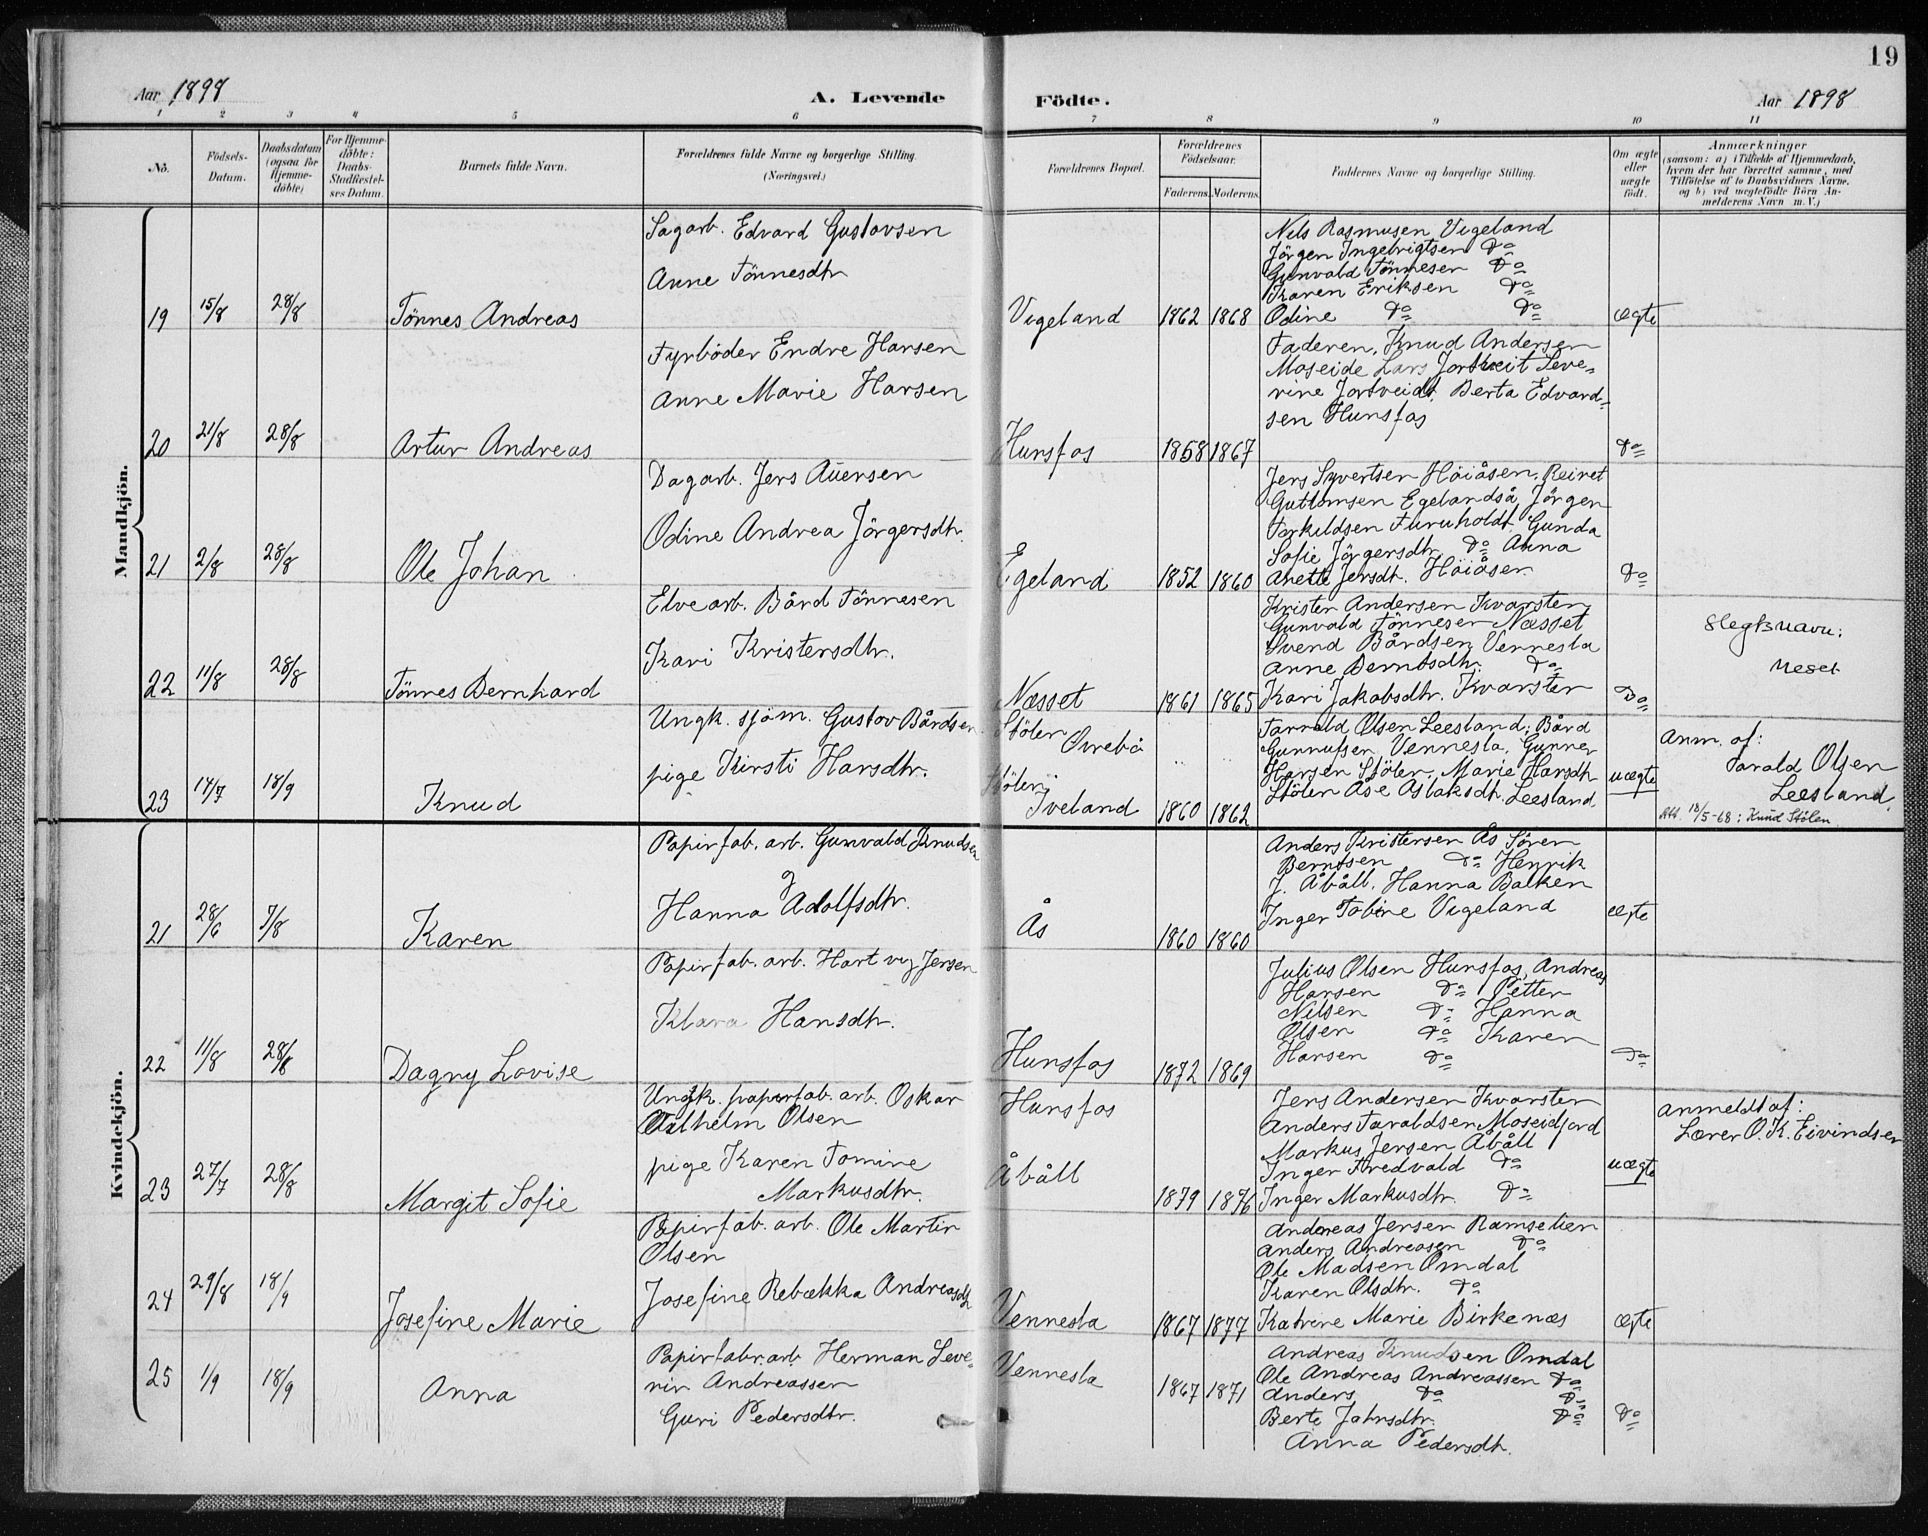 19
Aar 1898
A. Levende Födte.
Aar 1898
1 2 3 4 5 6 7 8 9 10 11
No.
Födsels-
Datum.
Daabsdatum
(ogsaa for
Hjemme-
döbte)
For Hjemme-
döbte:
Daabs-
Stadfæstel-
ses Datum.
Barnets fulde Navn.
Forældrenes fulde Navne og borgerlige Stilling.
(Næringsvei.)
Forældrenes Bopæl.
Forældrenes
Födselsaar.
Faderens. Moderens.
Faddernes Navne og borgerlige Stilling.
Om ægte
eller
uægte
født.
Anmærkninger
(saasom: a) i Tilfælde af Hjemmedaab,
hvem der har forrettet samme, med
Tilföielse af to Daabsvidners Navne,
og b) ved uægtefödte Börn An-
melderens Navn m.V.)
Mandkjön.
19 15/8 28/8 Tönnes Andreas
Sagarb. Edvard Gustavsen
Anne Tönnesdtr
Vigeland 1862 1868
Nils Rasmusen Vigeland
Jörgen Ingebrigtsen Do
Gunvald Tönnesen Do
Karen Eriksen Do
Odine Do Do
ægte
20 21/8 28/8 Artur Andreas
Fyrböder Endre Hansen
Anne Marie Hansen
Hunsfos 1858 1867
Faderen, Knud Andersen
Moseide Lars Jortveit Seve-
rine Jortveidt, Berta Edvard-
sen Hunsfos
Do
21 2/8 28/8 Ole Johan
Dagarb. Jens Auensen
Odine Andrea Jörgensdtr.
Egeland 1852 1860
Jens Syvertsen Höiåsen, Reinet
Guttomsen Egelandså, Jörgen
Torkildsen Furuholdt Gunda
Sofie Jörgensdtr Do Anna
Anette Jensdt. Höiåsen
Do
22 11/8 28/8 Tönnes Bernhard
Elvearb. Bård Tönnesen
Kari Kristensdtr.
Næsset 1861 1865
Kristen Andersen Kvarsten
Gunvald Tönnesen Næsset
Svend Bårdsen Vennesla
Anne Berntsdtr. Do
Kari Jakobsdtr. Kvarsten
Do
Slegtsnavn:
Neset
23 14/7 18/9 Knud
Ungk. sjöm. Gustav Bårdsen
pige Kirsti Hansdtr.
Stölen Övrebö
Stölen, Iveland 1860 1862
Tarald Olsen Leesland, Bård
Gunnufsen Vennesla, Gunner
Hansen Stölen, Marie Hansdtr
Stölen Åse Aslaksdt. Leesland
uægte
Anm. af:
Tarald Olsen
Leesland.
Att. 18/5-68: Knud Stölen
Kvindekjön.
21 28/6 7/8 Karen
Papirfab. arb. Gunvald Knudsen
og
Hanna Adolfsdtr.
Ås 1860 1860
Anders Kristensen Ås Sören
Berntsen Do Henrik
J. Åbåll, Hanna Balken
Inger Tobine Vigeland
ægte
22 11/8 28/8 Dagny Lovise
Papirfab. arb. Hartvig Jensen
Klara Hansdtr.
Hunsfos 1872 1869
Julius Olsen Hunsfos, Andreas
Hansen Do Petter
Nilsen Do Hanna
Olsen Do Karen
Hansen Do
Do
23 27/7 28/8 Margit Sofie
Ungk. papirfab. arb. Oskar
Vilhelm Olsen
pige Karen Tomine
Markusdtr.
Hunsfos
Åbåll
1879 1876
Jens Andersen Kvarsten
Anders Taraldsen Moseidjord
Markus Jensen Åbåll
Inger Fredvald Do
Inger Markusdtr. Do
uægte
Anmeldt af:
Lærer O. K. Eivindsen
24 29/8 18/9 Josefine Marie
Papirfab. arb. Ole Martin
Olsen
Josefine Rebækka Andreasdtr
Vennesla 1867 1877
Andreas Jensen Ramselien
Anders Andreasen Do
Ole Madsen Omdal
Karen Olsdtr. Do
Katrine Marie Birkenæs
ægte
25 1/9 18/9 Anna
Papirfabr. arb. Herman Seve-
rin Andreassen
Guri Pedersdtr.
Vennesla
1867 1871
Andreas Knudsen Omdal
Ole Andreas Andreassen Do
Anders Do Do
Berte Jahnsdtr. Do
Anna Pedersdt.
Do